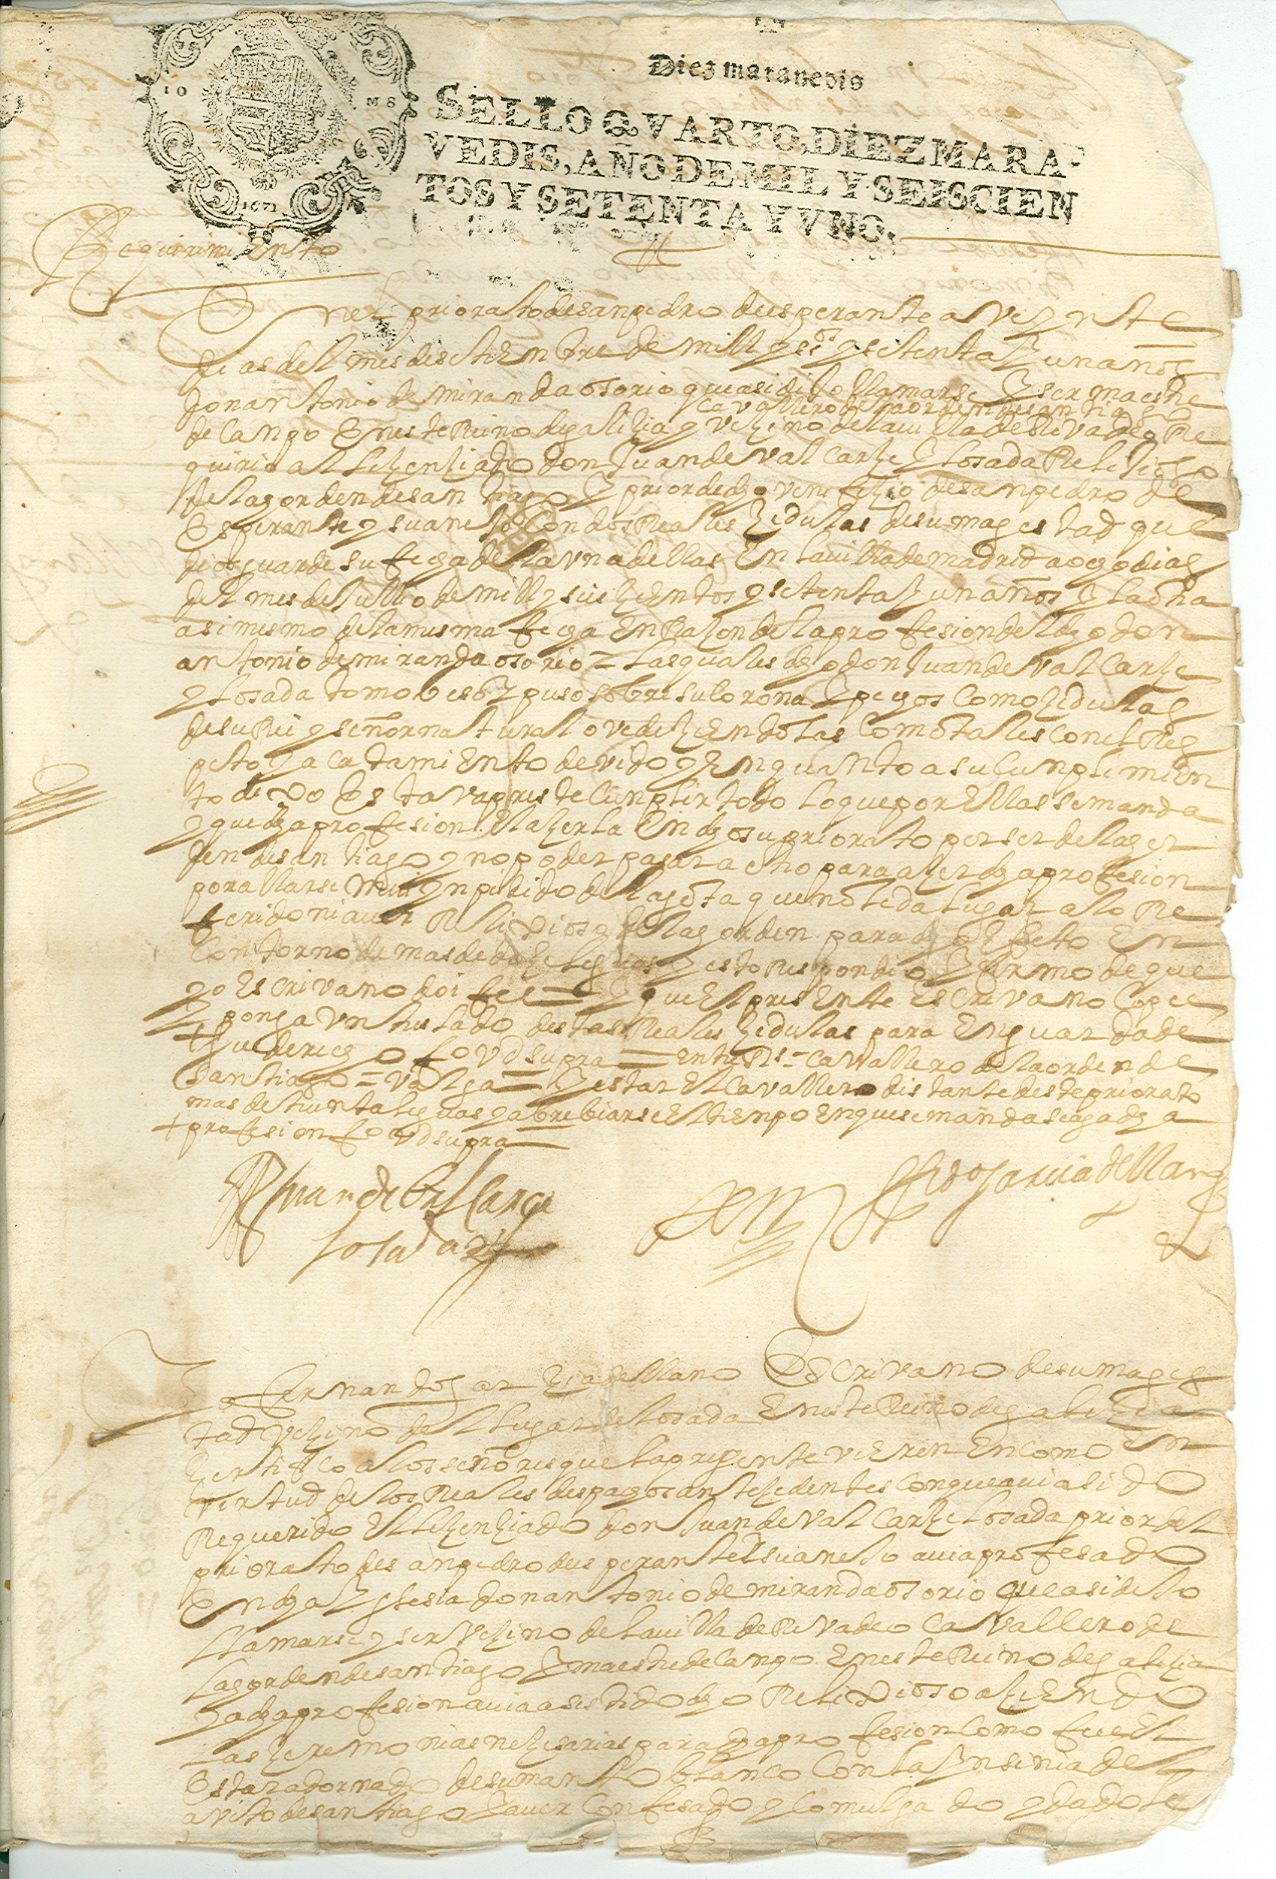 Diez maravedis
SELLO QVARTO, DIEZ MARA-
VEDIS, AÑO DE MIL Y SEISCIEN
TOS Y SETENTA Y VNO.
1671
Requirimiento
En el priorato de san pedro de esperante a veynte
dias del mes de setiembre de mill y ss.os y setenta y un años
don antonio de miranda osorio que asi dijo llamarse y ser maestre
cavallero de la orden de santiago
de canpo en este Reino de galicia y veçino de la villa de Rivadeo Re
quirio al licenciado don Juan de valcarçe y losada Relixioso
de la orden de santiago y prior de dho veneficio de san pedro de
esperante y su anejo con dos Reales çedulas de su magestad que
dios guarde su fecha de la una dellas en la villa de madrid a ocho dias
del mes de Jullio de mill y seiscientos y setenta y un años y la otra
asimismo de la misma fecha en Raçon de la profesion del dho don
antonio de miranda osorio = las quales dho don Juan de valcarçe
y losada tomo beso y puso sobre su corona y pechos como çedulas
de su Rei y señor natural ovedeciendolas como tales con el Res
peto y acatamiento devido y en quanto a su cunplimien
to dixo estava presto cunplir todo lo que por ellas se manda
y que dha profesion el açerla en dho su priorato por ser de la or
den de santiago y no poder pasar a otro para açer dha profesion
por allarse mui ynpidido de la gota que no le da lugar a lo Re
ferido ni aver Relixioso de la orden para dho efeto en
contorno de mas de doçe leguas y esto Respondio y firmo de que
yo escrivano doi fee = y que el presente escrivano copee
y ponga un treslado destas Reales çedulas para en guarda de
su derecho fo ud supra = entre Rs = cavallero de la orden de
santiago = valga = y estar el cavallero distante deste priorato
mas de treinta leguas y abrebiarse el tienpo en que se manda se aga dha
profesion fo ud supra
Juan de Valcarçe
losada
Fdo garcia de llano
Yo fernando garcia de llano escrivano de su mages
tad veçino del lugar de losada en este Reino de galicia
çertifico a los señores que la presente vieren en como en
virtud de los Reales despachos antecedentes con que avia sido
Requerido el licenciado don Juan de valcarçe losada prior del
priorato de san pedro de esperante y su anejo avia profesado
en dha yglesia don antonio de miranda osorio que asi dijo
llamarse y ser veçino de la villa de Rivadeo cavallero de
la orden de santiago y maestre de canpo en este Reino de galicia
y a dha profesion avia asistido dho Relixioso aciendo
las çeremonias neçesarias para dha profesion como fue el
estar adornado de su manto blanco con la ynsinia del
avito de santiago y aver confesado y comulgado y dadole